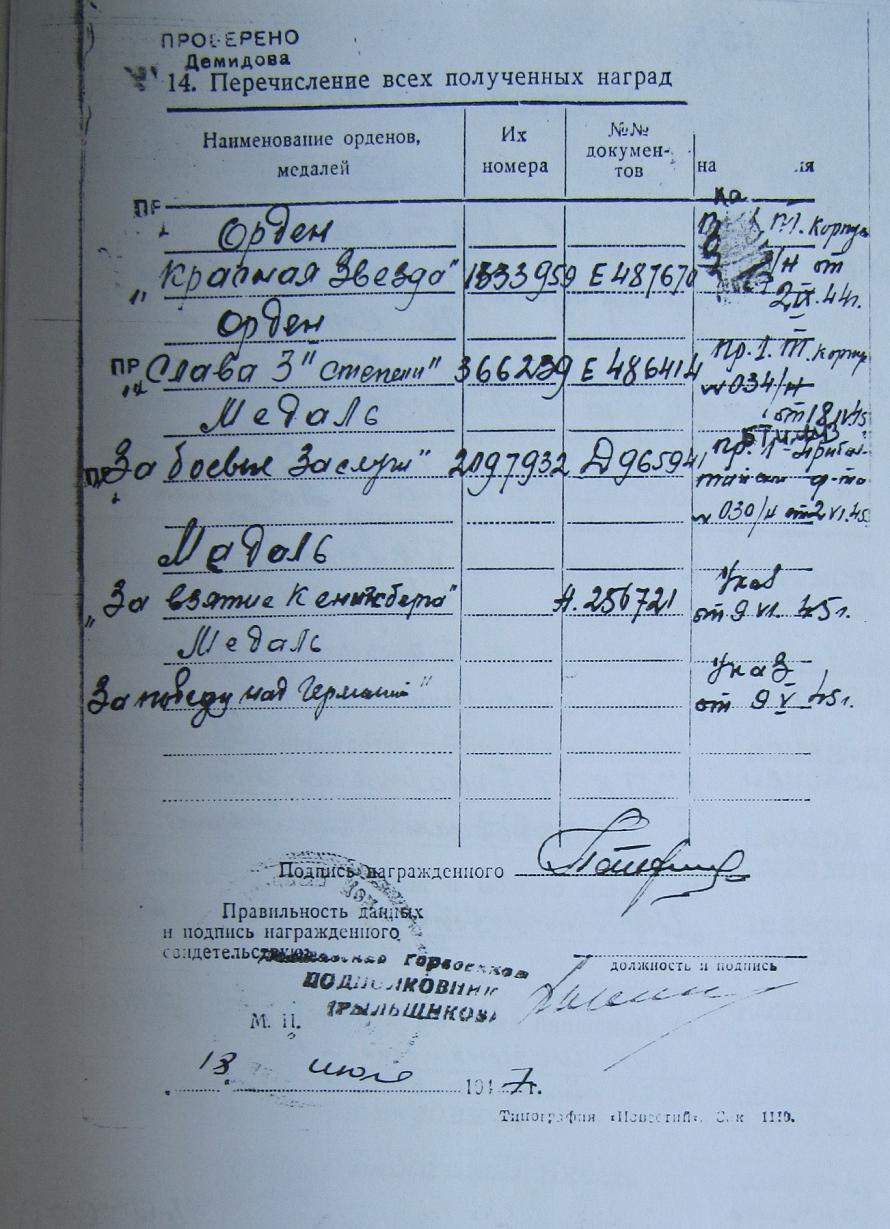 ПРОВЕРЕНО
Демидова
14. Перечисление всех полученных наград
Наименование орденов, медалей
Их номера
№№ докумен-тов
на ия
ПР
Орден
"Красная Звезда" 1333959 Е 487670
П.1. Корпус
/н от
2 IX. 44г.
Орден
ПР "Слава 3" степени" 366239 Е 486414
Пр. 1. Т. Корпу
№ 034/н
от 18 IV.45
Медаль
"За боевые Заслуги" 2097932 Д 965941
Пр. 1 Прибал-
№ 030/н от 2 VI.45
Медаль
"За взятие Кенигсберга" А. 256721
Указ
от 9 VI. 45г.
Медаль
За победу над Германией"
Указ
от 9 V 45г.
Подпись награжденного
Правильность данных
и подпись награжденного
свидетельствую:
должность и подпись
горвоенком
ПОДПОЛКОВНИК
М. П.
18 июля 1947г.
Типография «Известий». Зак 1119.